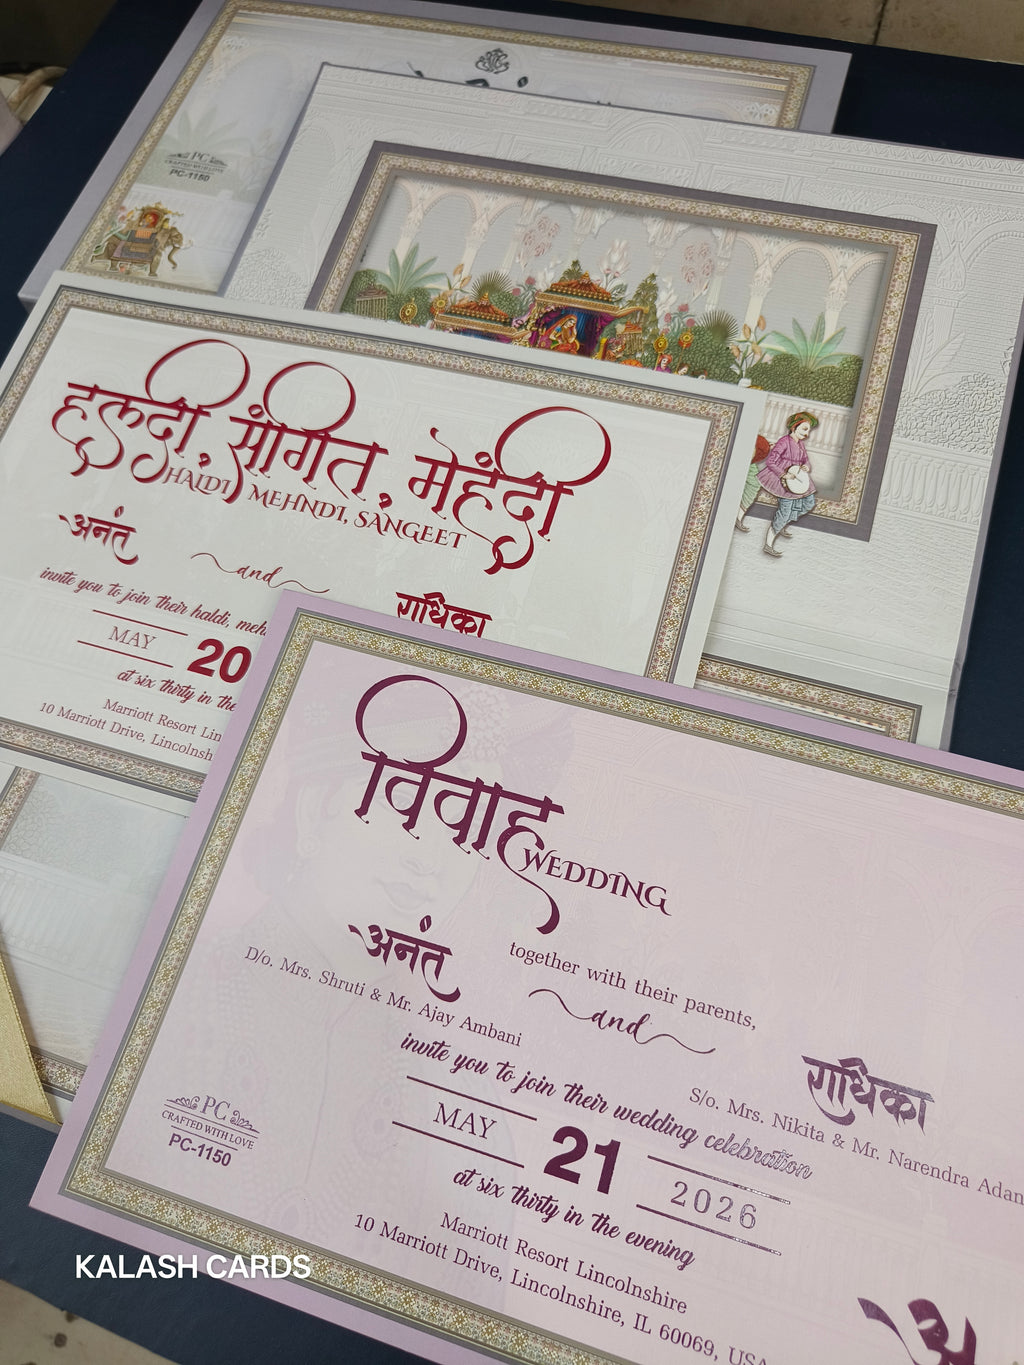 PC
CRAFTED WITH LOVE
PC-1150
हल्दी, संगीत, मेहंदी
HALDI, MEHNDI, SANGEET
अनंत
and
राधिका
invite you to join their haldi,
MAY
20
at six thirty in the
Marriott Resort
10 Marriott Drive,
विवाह
WEDDING
अनंत
together with their parents,
D/o. Mrs. Shruti & Mr. Ajay Ambani
and
राधिका
S/o. Mrs. Nikita & Mr. Narendra
invite you to join their wedding celebration
MAY
21
2026
at six thirty in the evening
Marriott Resort Lincolnshire
10 Marriott Drive, Lincolnshire, IL 60069, USA
PC
CRAFTED WITH LOVE
PC-1150
KALASH CARDS